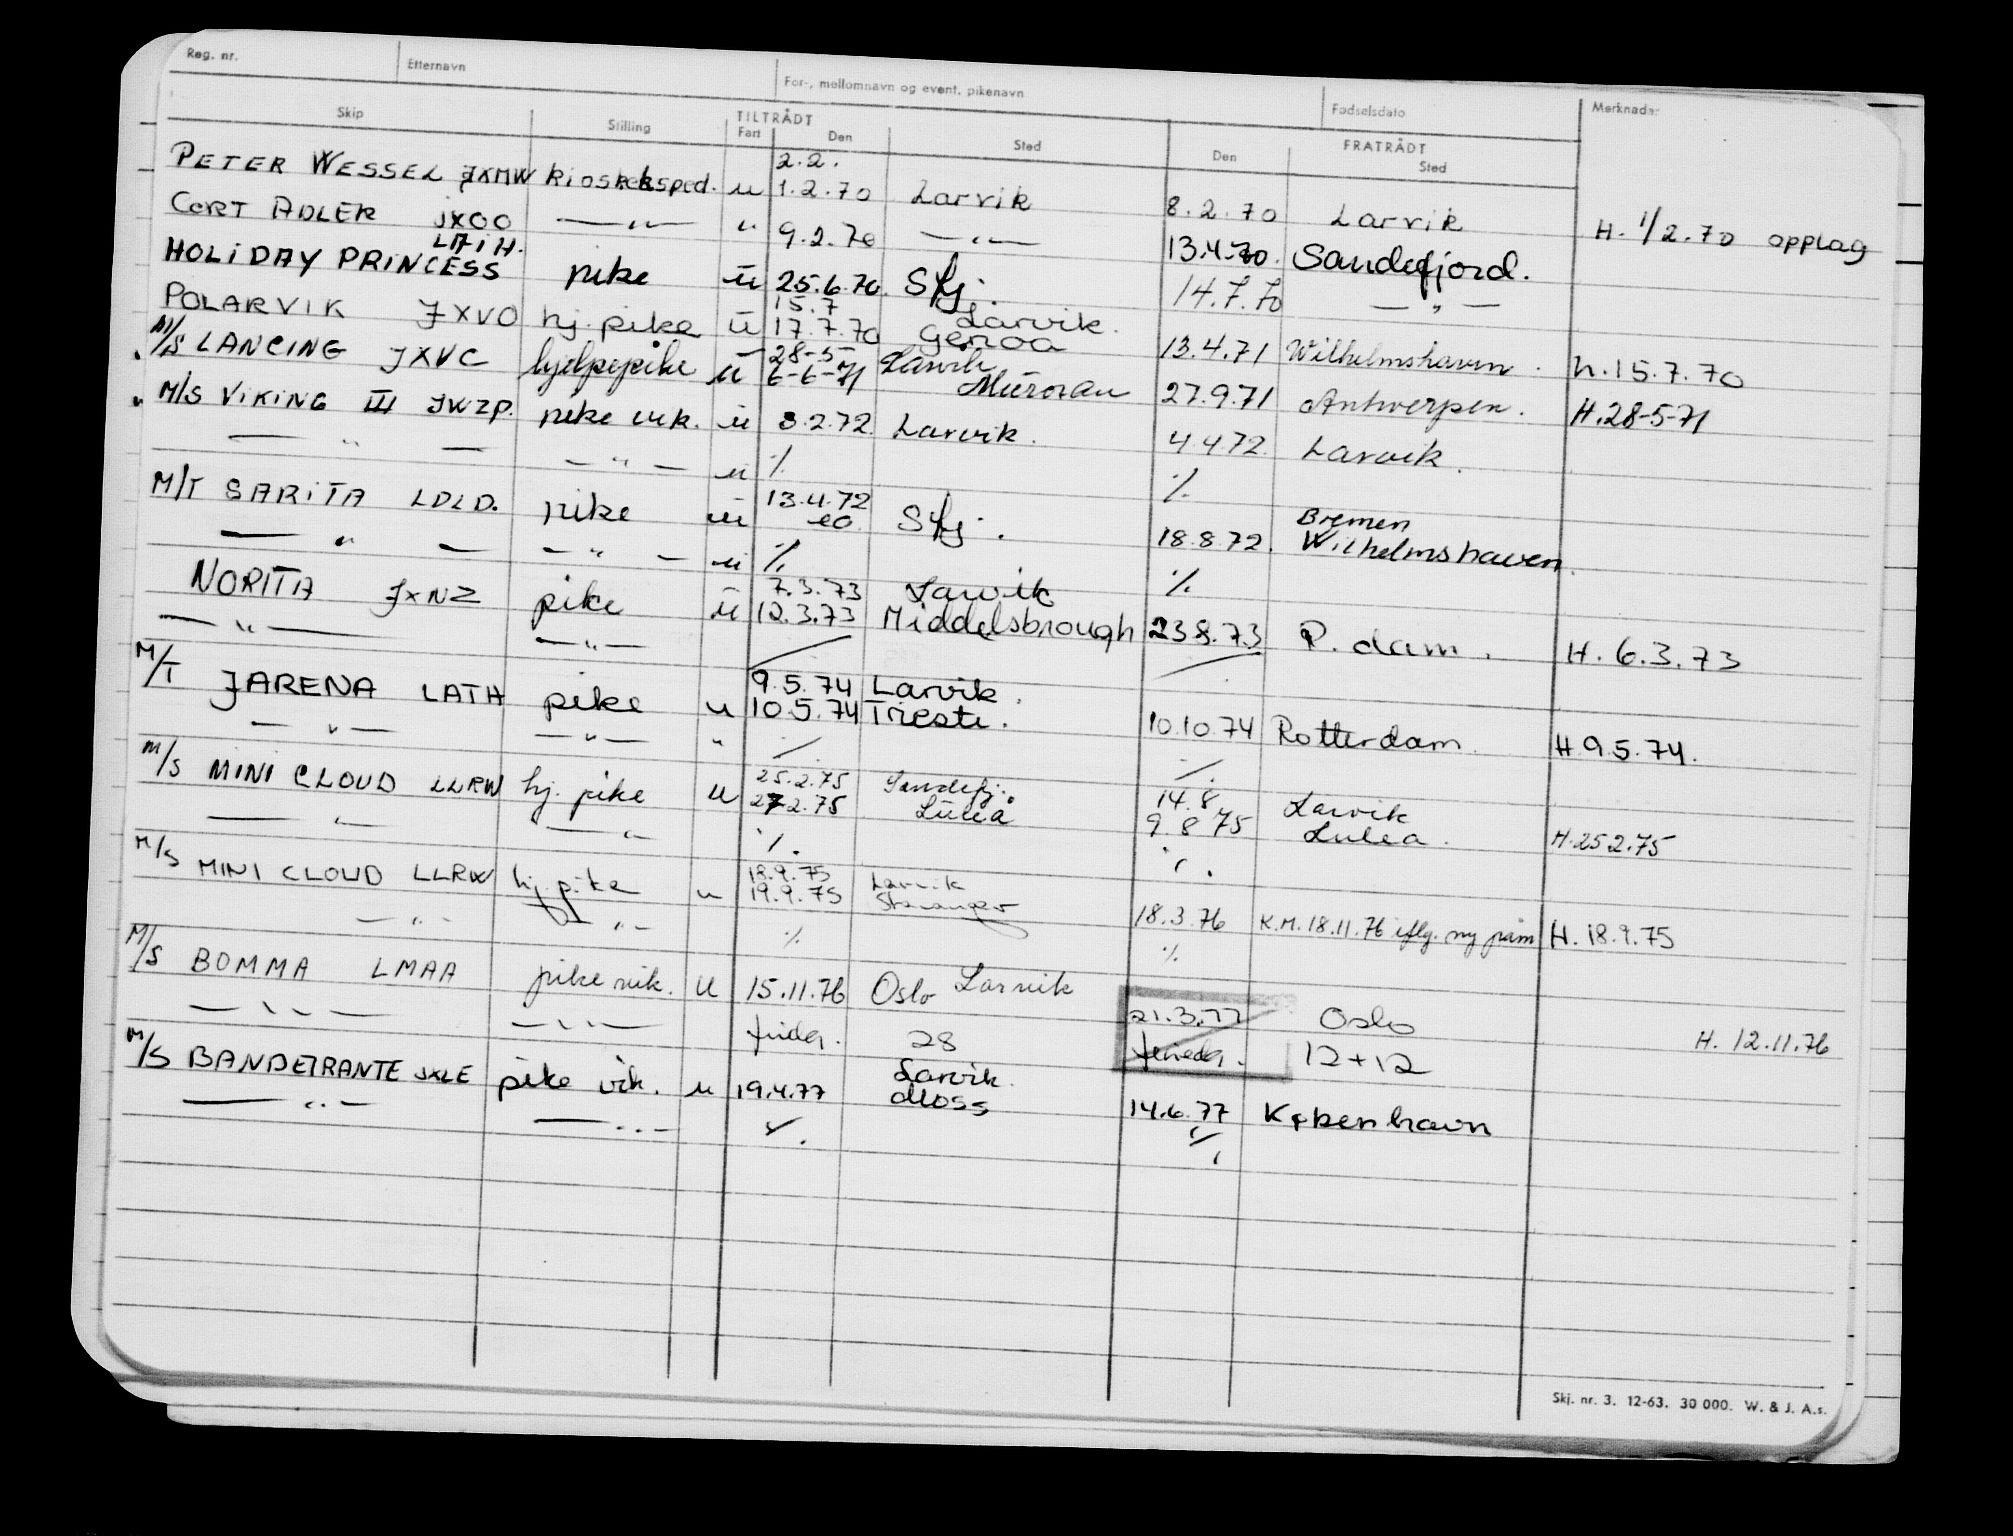 Reg. nr. Etternavn For-, mellomnavn og event. pikenavn Fødselsdato Merknader
Skip Stilling TILTRÅDT Fart Den Sted FRATRÅDT Den Sted
2.2.
PETER WESSEL JXMW kioskeksped. u 1.2.70 Larvik 8.2.70 Larvik H. 1/2.70 opplag
CORT ADLER JXOO — " — " 9.2.70 — " — 13.4.70. Sandefjord.
LAIH.
HOLIDAY PRINCESS pike u 25.6.70. Sfj. 14.7.70 — " —
15.7 Larvik.
POLARVIK JXVO hj. pike u 17.7.70 Genoa 13.4.71 Wilhelmshaven. h.15.7.70
28-5- Larvik
M/S LANCING JXVC hjelpepike u 6-6-71 Muroran 27.9.71 Antwerpen. H.28-5-71
M/S VIKING III JWZP. pike vik. u 8.2.72. Larvik. 4.4.72. Larvik.
— " — — " — u % %
M/T SARITA LDLD. pike u 13.4.72 Sfj. 18.8.72. Bremen
Wilhelmshaven.
— " — — " — u % %
7.3.73 Larvik
NORITA JXNZ pike u 12.3.73 Middelsbrough 23.8.73 R.dam. H. 6.3.73
— " — — " —
9.5.74 Larvik.
M/T JARENA LATH pike u 10.5.74 Trieste. 10.10.74 Rotterdam. H.9.5.74.
— " — — " — " % %
25.2.75 Sandefj. 14.8 Larvik
M/S MINI CLOUD LLRW hj. pike u 27.2.75 Lulea 9.8.75 Lulea. H.25.2.75
— " — — " — % %
18.9.75 Larvik
M/S MINI CLOUD LLRW hj. pike u 19.9.75 Stavanger 18.3.76 K.M. 18.11.76 iflg. ny påm H. 18.9.75
— " — — " — % %
M/S BOMMA LMAA pike vik. u 15.11.76 Oslo Larvik 21.3.77 Oslo H. 12.11.76
— " — — " — frider. 28 frider. 12+12
Larvik.
M/S BANDEIRANTE JXLE pike vik. u 19.4.77 Moss 14.6.77 København
— " — — " — % %
Skj. nr. 3. 12-63. 30 000. W. & J. A.s.